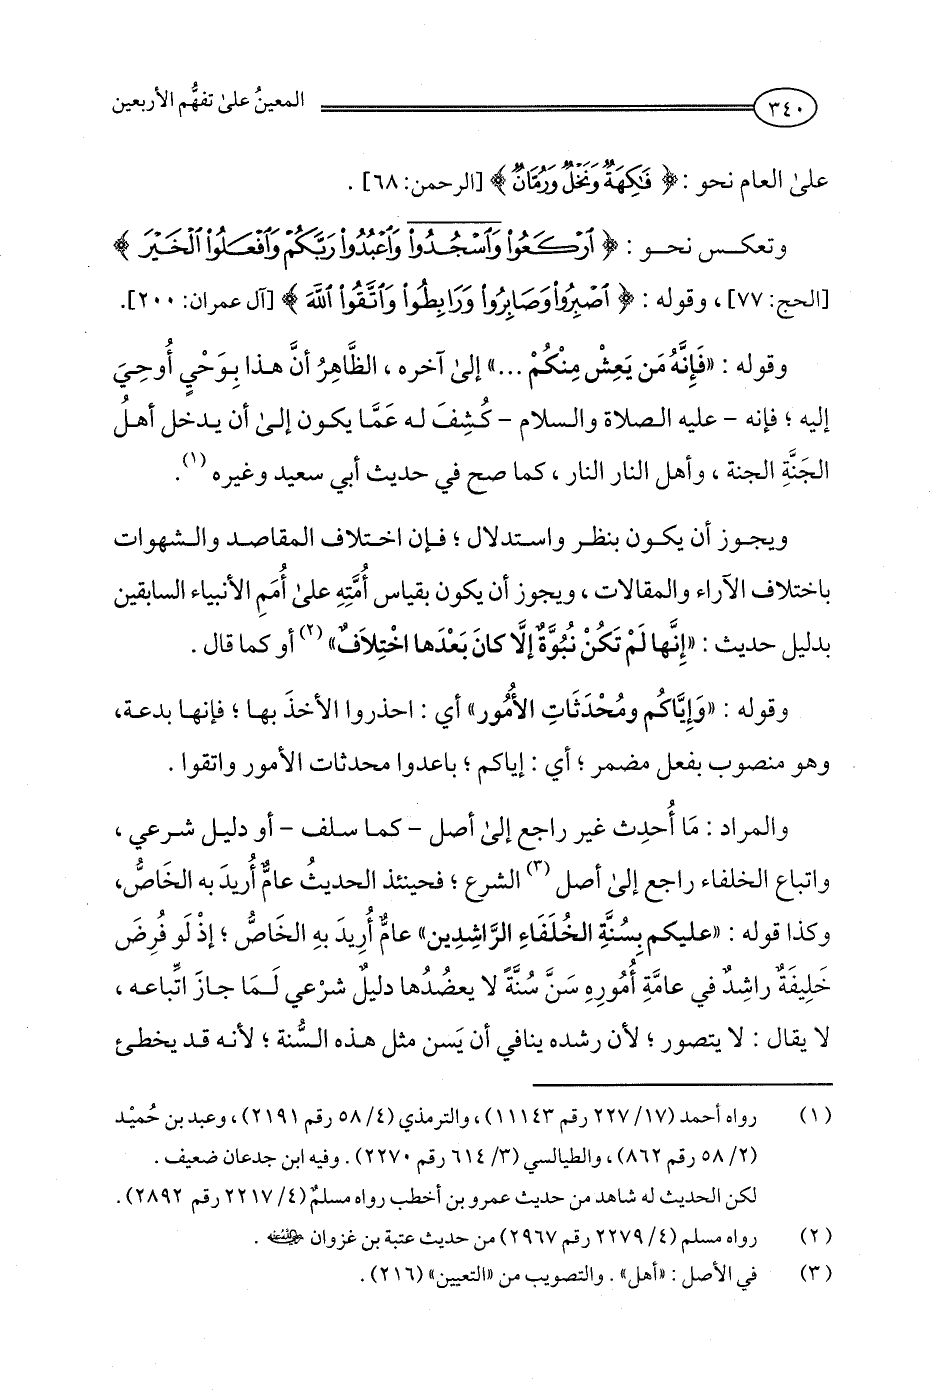 ٣٤٠ المعينُ على تفهُّم الأربعين
على العام نحو : ﴿ فَٰكِهَةٌ وَنَخْلٌ وَرُمَّانٌ ﴾ [الرحمن: ٦٨] .
وتعكس نحو : ﴿ ٱرْكَعُوا۟ وَٱسْجُدُوا۟ وَٱعْبُدُوا۟ رَبَّكُمْ وَٱفْعَلُوا۟ ٱلْخَيْرَ ﴾
[الحج: ٧٧] ، وقوله : ﴿ ٱصْبِرُوا۟ وَصَابِرُوا۟ وَرَابِطُوا۟ وَٱتَّقُوا۟ ٱللَّهَ ﴾ [آل عمران: ٢٠٠].
وقوله : «فَإِنَّهُ مَن يَعِشْ مِنْكُمْ ...» إلى آخره ، الظَّاهِرُ أنَّ هذا بِوَحْيٍ أُوحِيَ
إليه ؛ فإنه – عليه الصلاة والسلام – كُشِفَ له عَمَّا يكون إلى أن يدخل أهلُ
الجَنَّةِ الجنة ، وأهل النار النار ، كما صح في حديث أبي سعيد وغيره (١).
ويجوز أن يكون بنظر واستدلال ؛ فإن اختلاف المقاصد والشهوات
باختلاف الآراء والمقالات ، ويجوز أن يكون بقياس أُمَّتِهِ على أُمَمِ الأنبياء السابقين
بدليل حديث : «إِنَّها لَمْ تَكُنْ نُبُوَّةٌ إلَّا كانَ بَعْدَها اخْتِلَافٌ» (٢) أو كما قال .
وقوله : «وَإِيَّاكُم ومُحْدَثَاتِ الأُمُور» أي : احذروا الأخذَ بها ؛ فإنها بدعة،
وهو منصوب بفعل مضمر ؛ أي : إياكم ؛ باعدوا محدثات الأمور واتقوا .
والمراد : مَا أُحدِث غير راجع إلى أصل – كما سلف – أو دليل شرعي ،
واتباع الخلفاء راجع إلى أصل (٣) الشرع ؛ فحينئذ الحديثُ عامٌّ أُريدَ به الخَاصُّ،
وكذا قوله : «عليكم بِسُنَّةِ الخُلَفَاءِ الرَّاشِدِين» عامٌّ أُريدَ بِهِ الخَاصُّ ؛ إذْ لَو فُرِضَ
خَلِيفَةٌ راشِدٌ في عامَّةِ أُمُورِهِ سَنَّ سُنَّةً لا يعضُدُها دليلٌ شرْعي لَمَا جازَ اتِّباعه ،
لا يقال : لا يتصور ؛ لأن رشده ينافي أن يَسن مثل هذه السُّنة ؛ لأنه قد يخطئ
(١) رواه أحمد (١٧/ ٢٢٧ رقم ١١١٤٣)، والترمذي (٤/ ٥٨ رقم ٢١٩١)، وعبد بن حُميْد
(٢/ ٥٨ رقم ٨٦٢)، والطيالسي (٣/ ٦١٤ رقم ٢٢٧٠) . وفيه ابن جدعان ضعيف .
لكن الحديث له شاهد من حديث عمرو بن أخطب رواه مسلمٌ (٤/ ٢٢١٧ رقم ٢٨٩٢) .
(٢) رواه مسلم (٤/ ٢٢٧٩ رقم ٢٩٦٧) من حديث عتبة بن غزوان رضي الله عنه .
(٣) في الأصل : «أهل» . والتصويب من «التعيين» (٢١٦) .